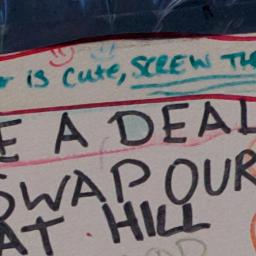 r is cute, SCREW TH
E A DEAL
SWAP OUR
AT HILL